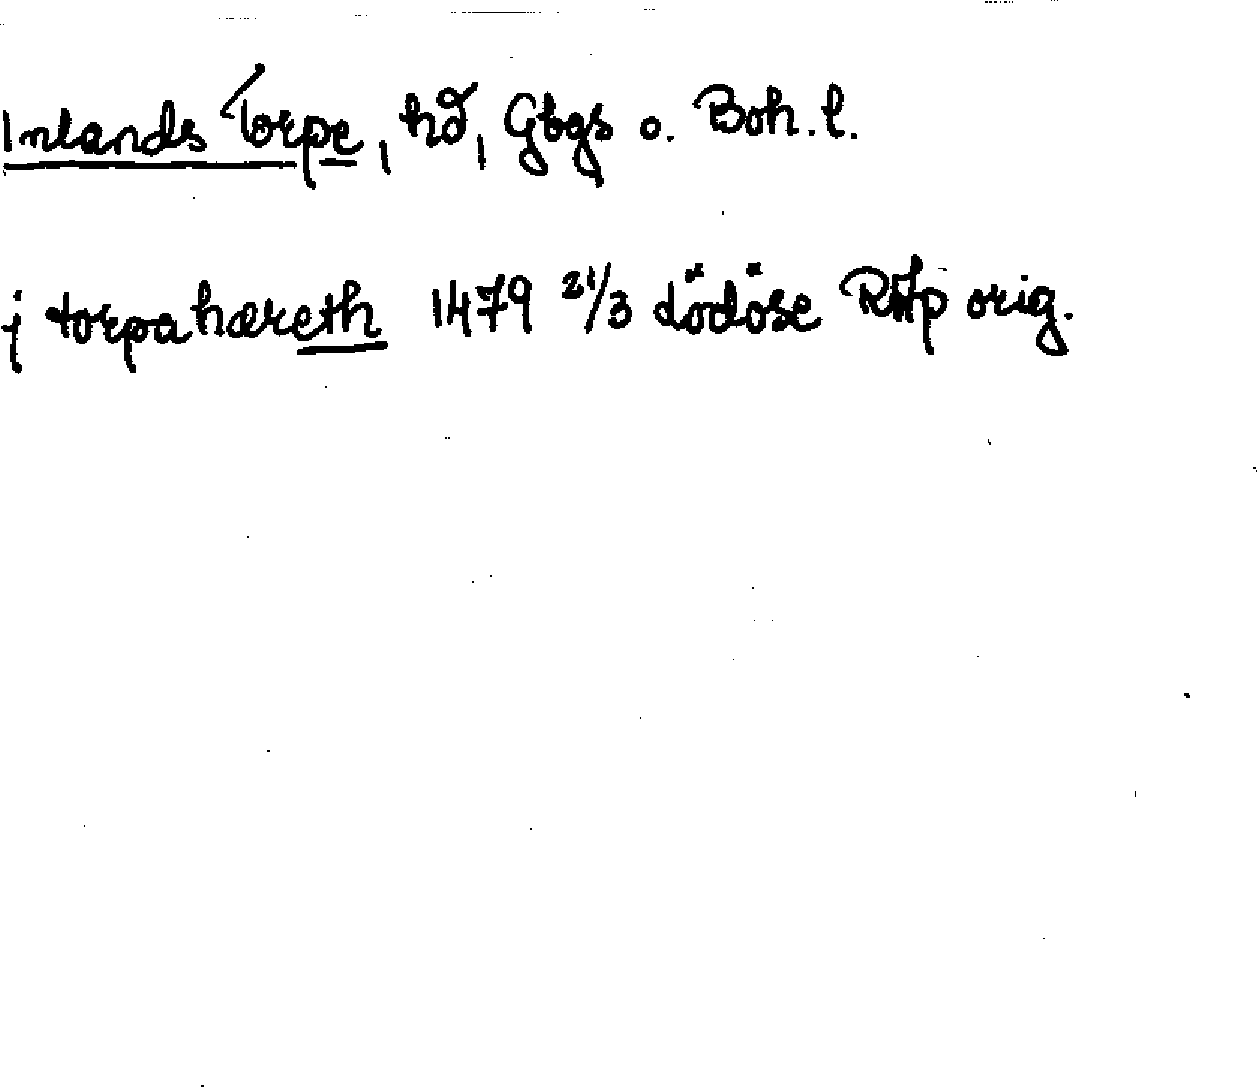 Inlands Torpe, hd, Gbgs o. Boh. l.
j torpahæreth 1479 21/3 Lödöse RAp orig.